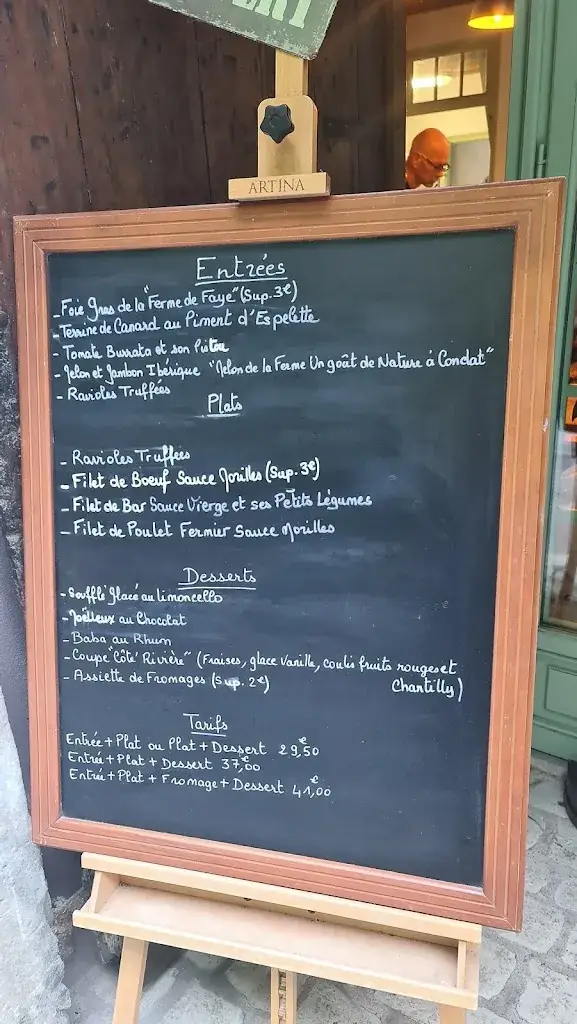 ERT
ARTINA
Entrées
- Foie gras de la "Ferme de Faye" (Sup. 3€)
- Terrine de Canard au Piment d'Espelette
- Tomate Burrata et son Pistou
- Melon et Jambon Ibérique "Melon de la Ferme Un goût de Nature à Condat"
- Ravioles Truffées
Plats
- Ravioles Truffées
- Filet de Boeuf Sauce Morilles (Sup. 3€)
- Filet de Bar Sauce Vierge et ses Petits Légumes
- Filet de Poulet Fermier Sauce Morilles
Desserts
- Soufflé glacé au limoncello
- Moëlleux au Chocolat
- Baba au Rhum
- Coupe "Côté Rivière" (Fraises, glace Vanille, coulis fruits rouges et
Chantilly)
- Assiette de Fromages (Sup. 2€)
Tarifs
Entrée + Plat ou Plat + Dessert 29,50€
Entrée + Plat + Dessert 37,00€
Entrée + Plat + Fromage + Dessert 41,00€